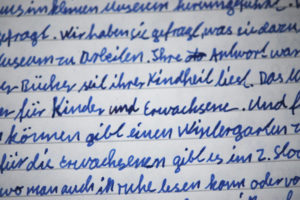 uns im kleinen Museum herumgeführt.
gefragt. Wir haben sie gefragt, was sie dazu
Museum zu Arbeiten. Ihre Antwort war
er Bücher seit ihrer Kindheit liest. Das M
er für Kinder und Erwachsene. Und f
können gibt einen Wintergarten z
für die Erwachsenen gibt es im 2. Stoc
wo man auch in ruhe lesen kann oder vo